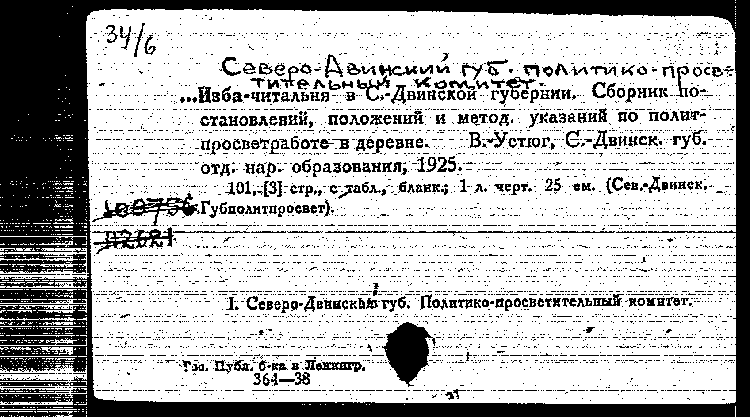 34/6
Северо-Двинский губ. политико-просве-
тительный комитет.
...Изба-читальня в С.-Двинской губернии. Сборник по-
становлений, положений и метод. указаний по полит-
просветработе в деревне. В.-Устюг, С.-Двинск. губ.
отд. нар. образования, 1925.
101, [3] стр., с табл., бланк.; 1 л. черт. 25 см. (Сев.-Двинск.
Губполитпросвет).
112621
I. Северо-Двинский губ. Политико-просветительный комитет.
Гос. Публ. б-ка в Ленингр.
364—38